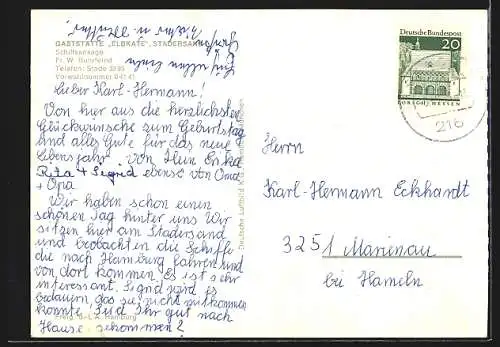 GASTSTÄTTE „ELBKATE“, STADERSAND
Schiffsansage
Fr. W.
Telefon: Stade
Vorwahlnummer 0 41 41
Lieber Karl-Hermann!
Von hier aus die herzlichsten
Glückwünsche zum Geburtstag
und alles Gute für das neue
Lebensjahr von Heini Erika
Rita + Sigrid ebenso von Oma
+ Opa
Wir haben schon einen
schönen Tag hinter uns Wir
sitzen hier am Stadersand
und beobachten die Schiffe
die nach Hamburg fahren und
von dort kommen Es ist sehr
interessant. Sigrid wird es
bedauern, das sie nicht mitkommen
konnte. Seid Ihr gut nach
Hause gekommen?
Deutsche Luftbild K.G.
Hamburg
Deutsche Bundespost
20
LORSCH/HESSEN
216
Herrn
Karl-Hermann Eckhardt
3251 Marienau
bei Hameln